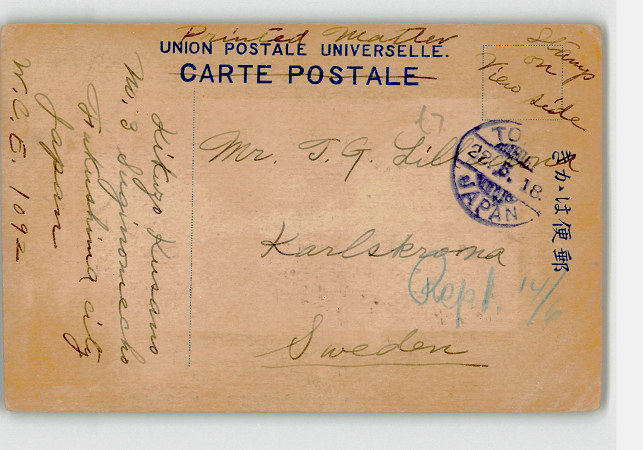 Printed Matter
UNION POSTALE UNIVERSELLE.
CARTE POSTALE
Stamps
on
View side
Mr. T. G.
Karlskrona
Sweden
Repl. 14/6
TO
22. 5. 18.
JAPAN
きかは便郵
Kikuzo Kusano
No. 3 Suginomecho
Fukushima city
Japan
W.C.E. 1092